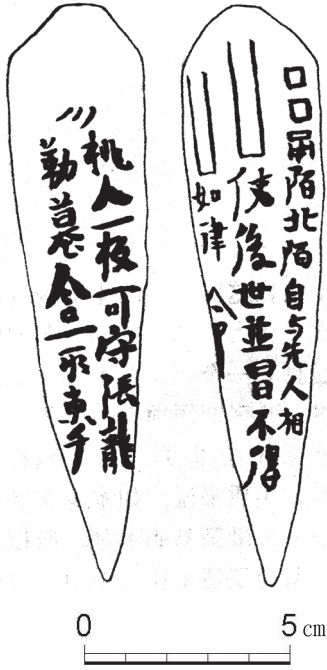 桃人一枚可守張龍
勒墓舍一所東
□□南陌北陌自与先人相
使後世並冒不得
如律令
0 5 cm